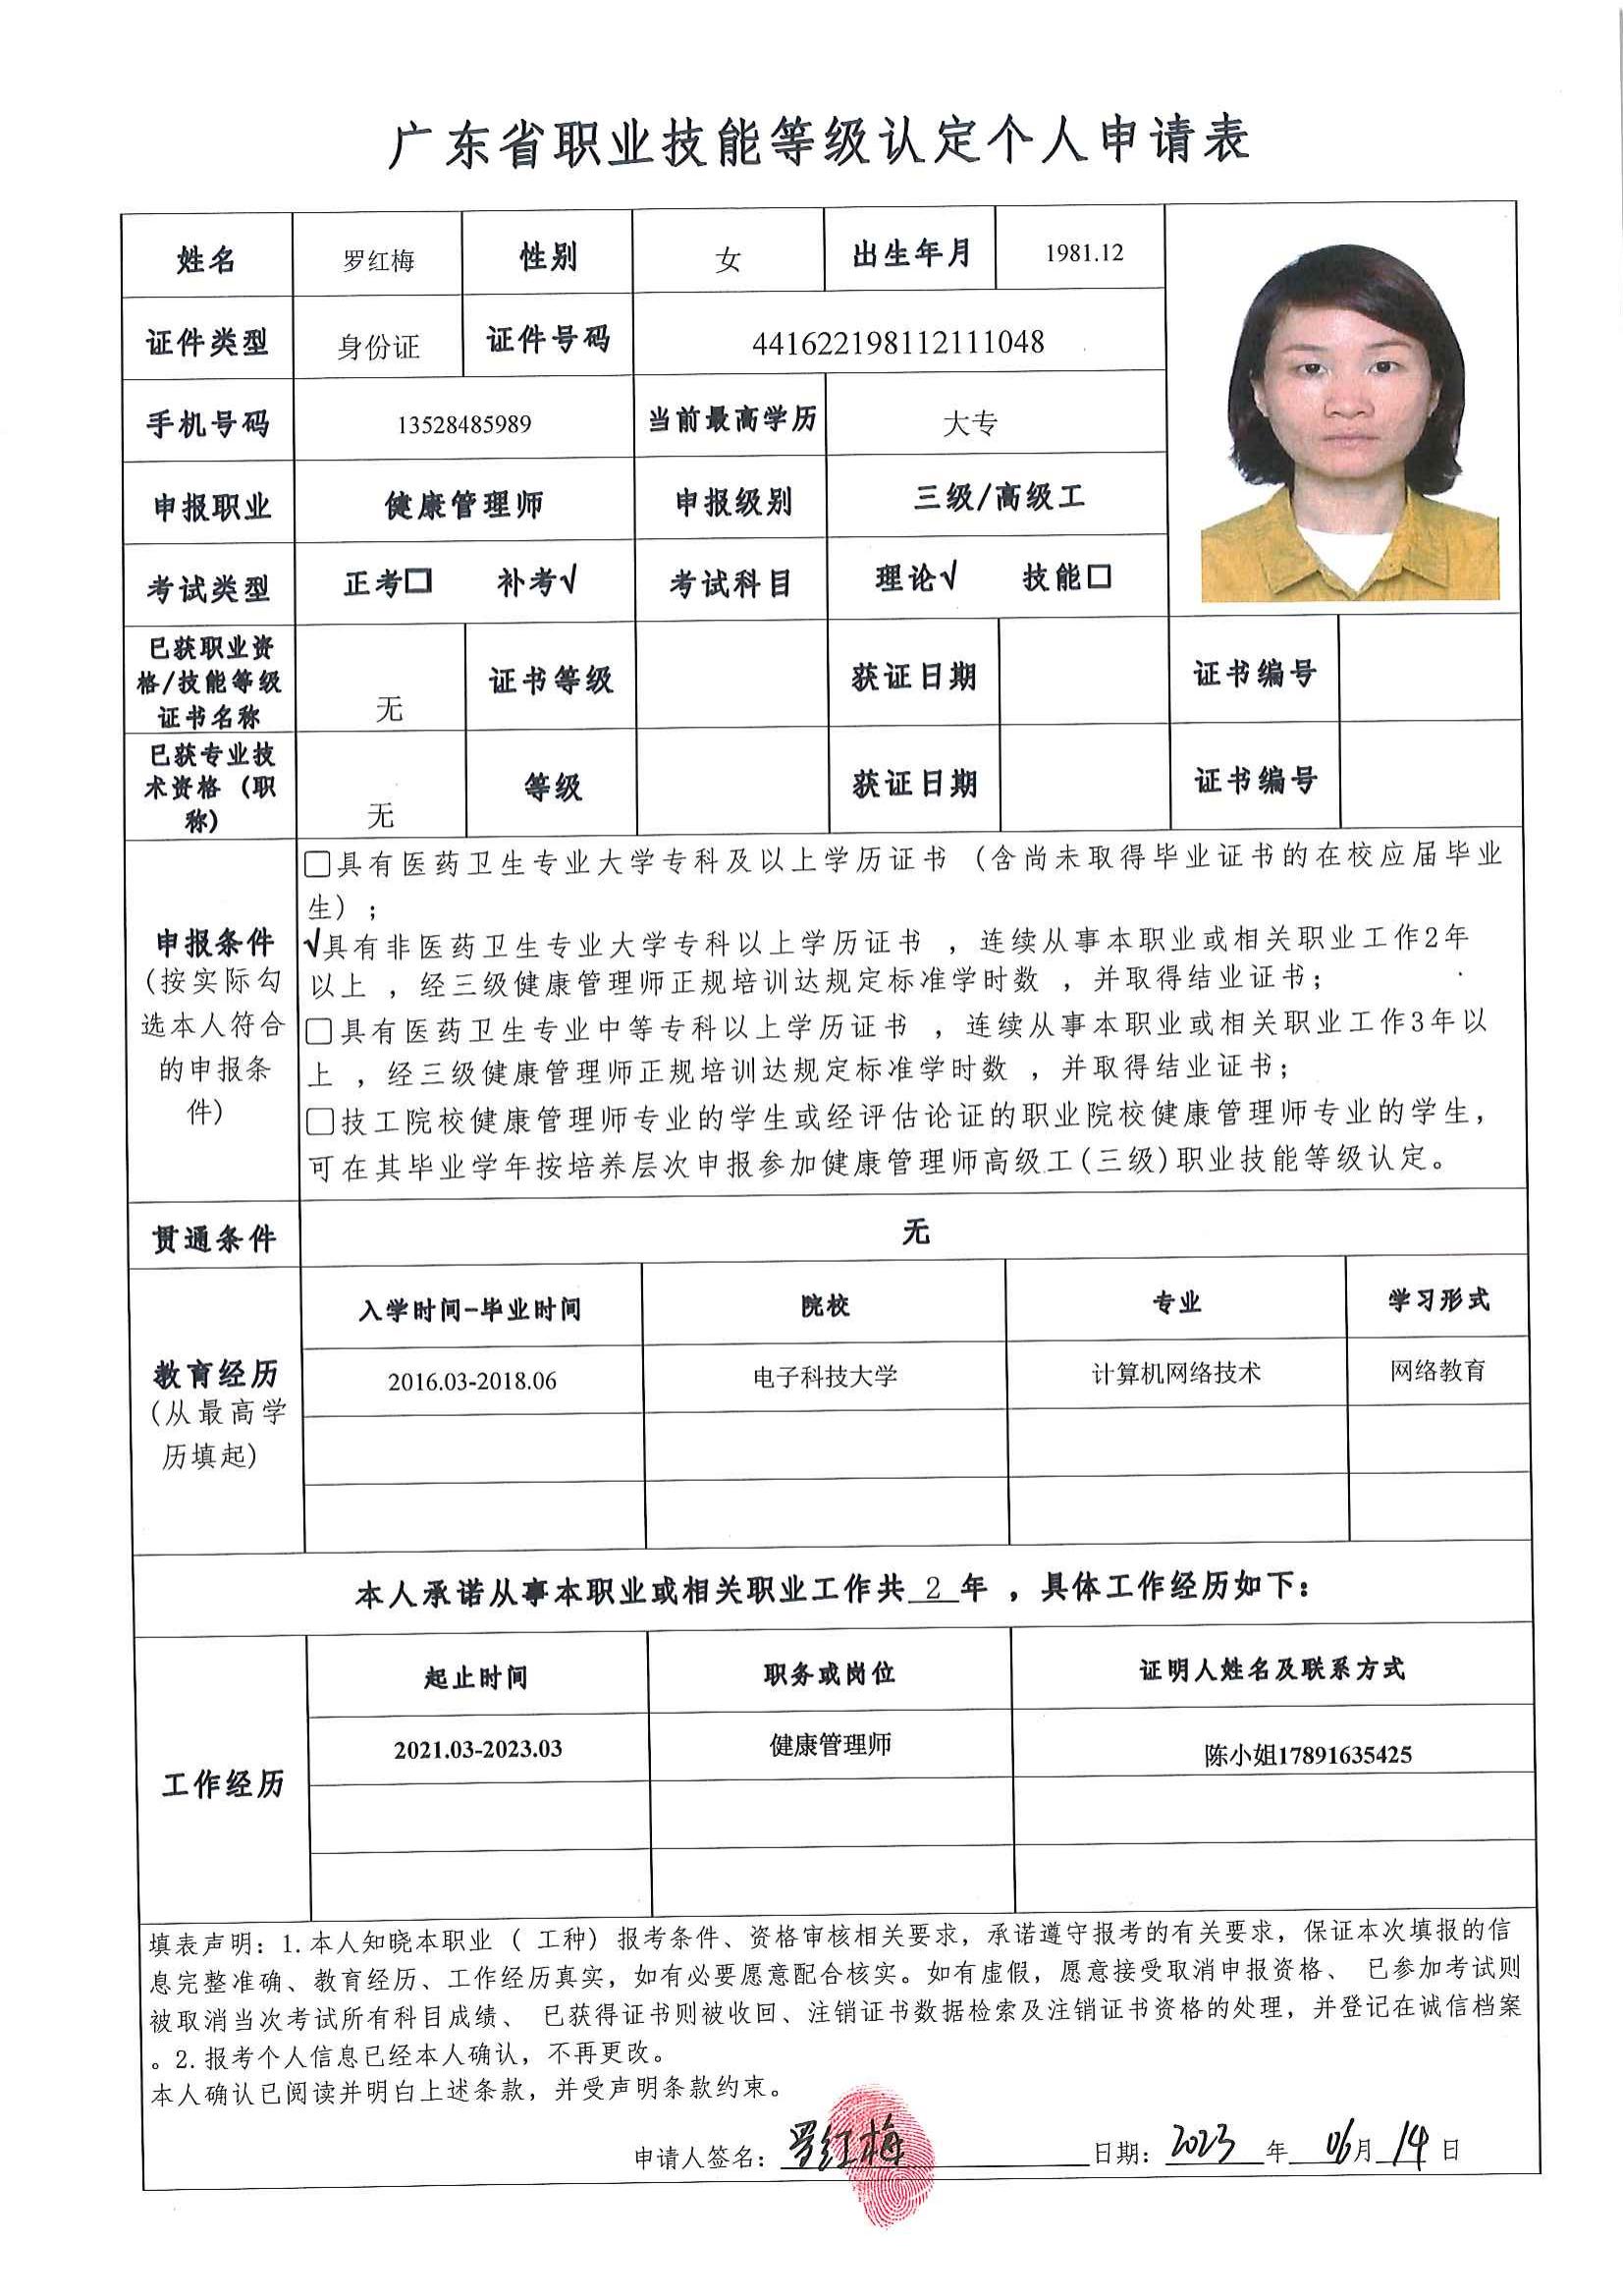 广东省职业技能等级认定个人申请表
姓名 罗红梅 性别 女 出生年月 1981.12
证件类型 身份证 证件号码 441622198112111048
手机号码 13528485989 当前最高学历 大专
申报职业 健康管理师 申报级别 三级/高级工
考试类型 正考□ 补考√ 考试科目 理论√ 技能□
已获职业资
格/技能等级
证书名称
无 证书等级 获证日期 证书编号
已获专业技
术资格（职
称）
无 等级 获证日期 证书编号
申报条件
（按实际勾
选本人符合
的申报条
件）
□具有医药卫生专业大学专科及以上学历证书（含尚未取得毕业证书的在校应届毕业
生）；
√具有非医药卫生专业大学专科以上学历证书，连续从事本职业或相关职业工作2年
以上，经三级健康管理师正规培训达规定标准学时数，并取得结业证书；
□具有医药卫生专业中等专科以上学历证书，连续从事本职业或相关职业工作3年以
上，经三级健康管理师正规培训达规定标准学时数，并取得结业证书；
□技工院校健康管理师专业的学生或经评估论证的职业院校健康管理师专业的学生，
可在其毕业学年按培养层次申报参加健康管理师高级工(三级)职业技能等级认定。
贯通条件 无
教育经历
（从最高学
历填起）
入学时间-毕业时间 院校 专业 学习形式
2016.03-2018.06 电子科技大学 计算机网络技术 网络教育
本人承诺从事本职业或相关职业工作共 2 年，具体工作经历如下：
工作经历
起止时间 职务或岗位 证明人姓名及联系方式
2021.03-2023.03 健康管理师 陈小姐17891635425
填表声明：1.本人知晓本职业（工种）报考条件、资格审核相关要求，承诺遵守报考的有关要求，保证本次填报的信
息完整准确、教育经历、工作经历真实，如有必要愿意配合核实。如有虚假，愿意接受取消申报资格、 已参加考试则
被取消当次考试所有科目成绩、 已获得证书则被收回、注销证书数据检索及注销证书资格的处理，并登记在诚信档案
。2.报考个人信息已经本人确认，不再更改。
本人确认已阅读并明白上述条款，并受声明条款约束。
申请人签名：罗红梅 日期：2023 年 06月 14 日